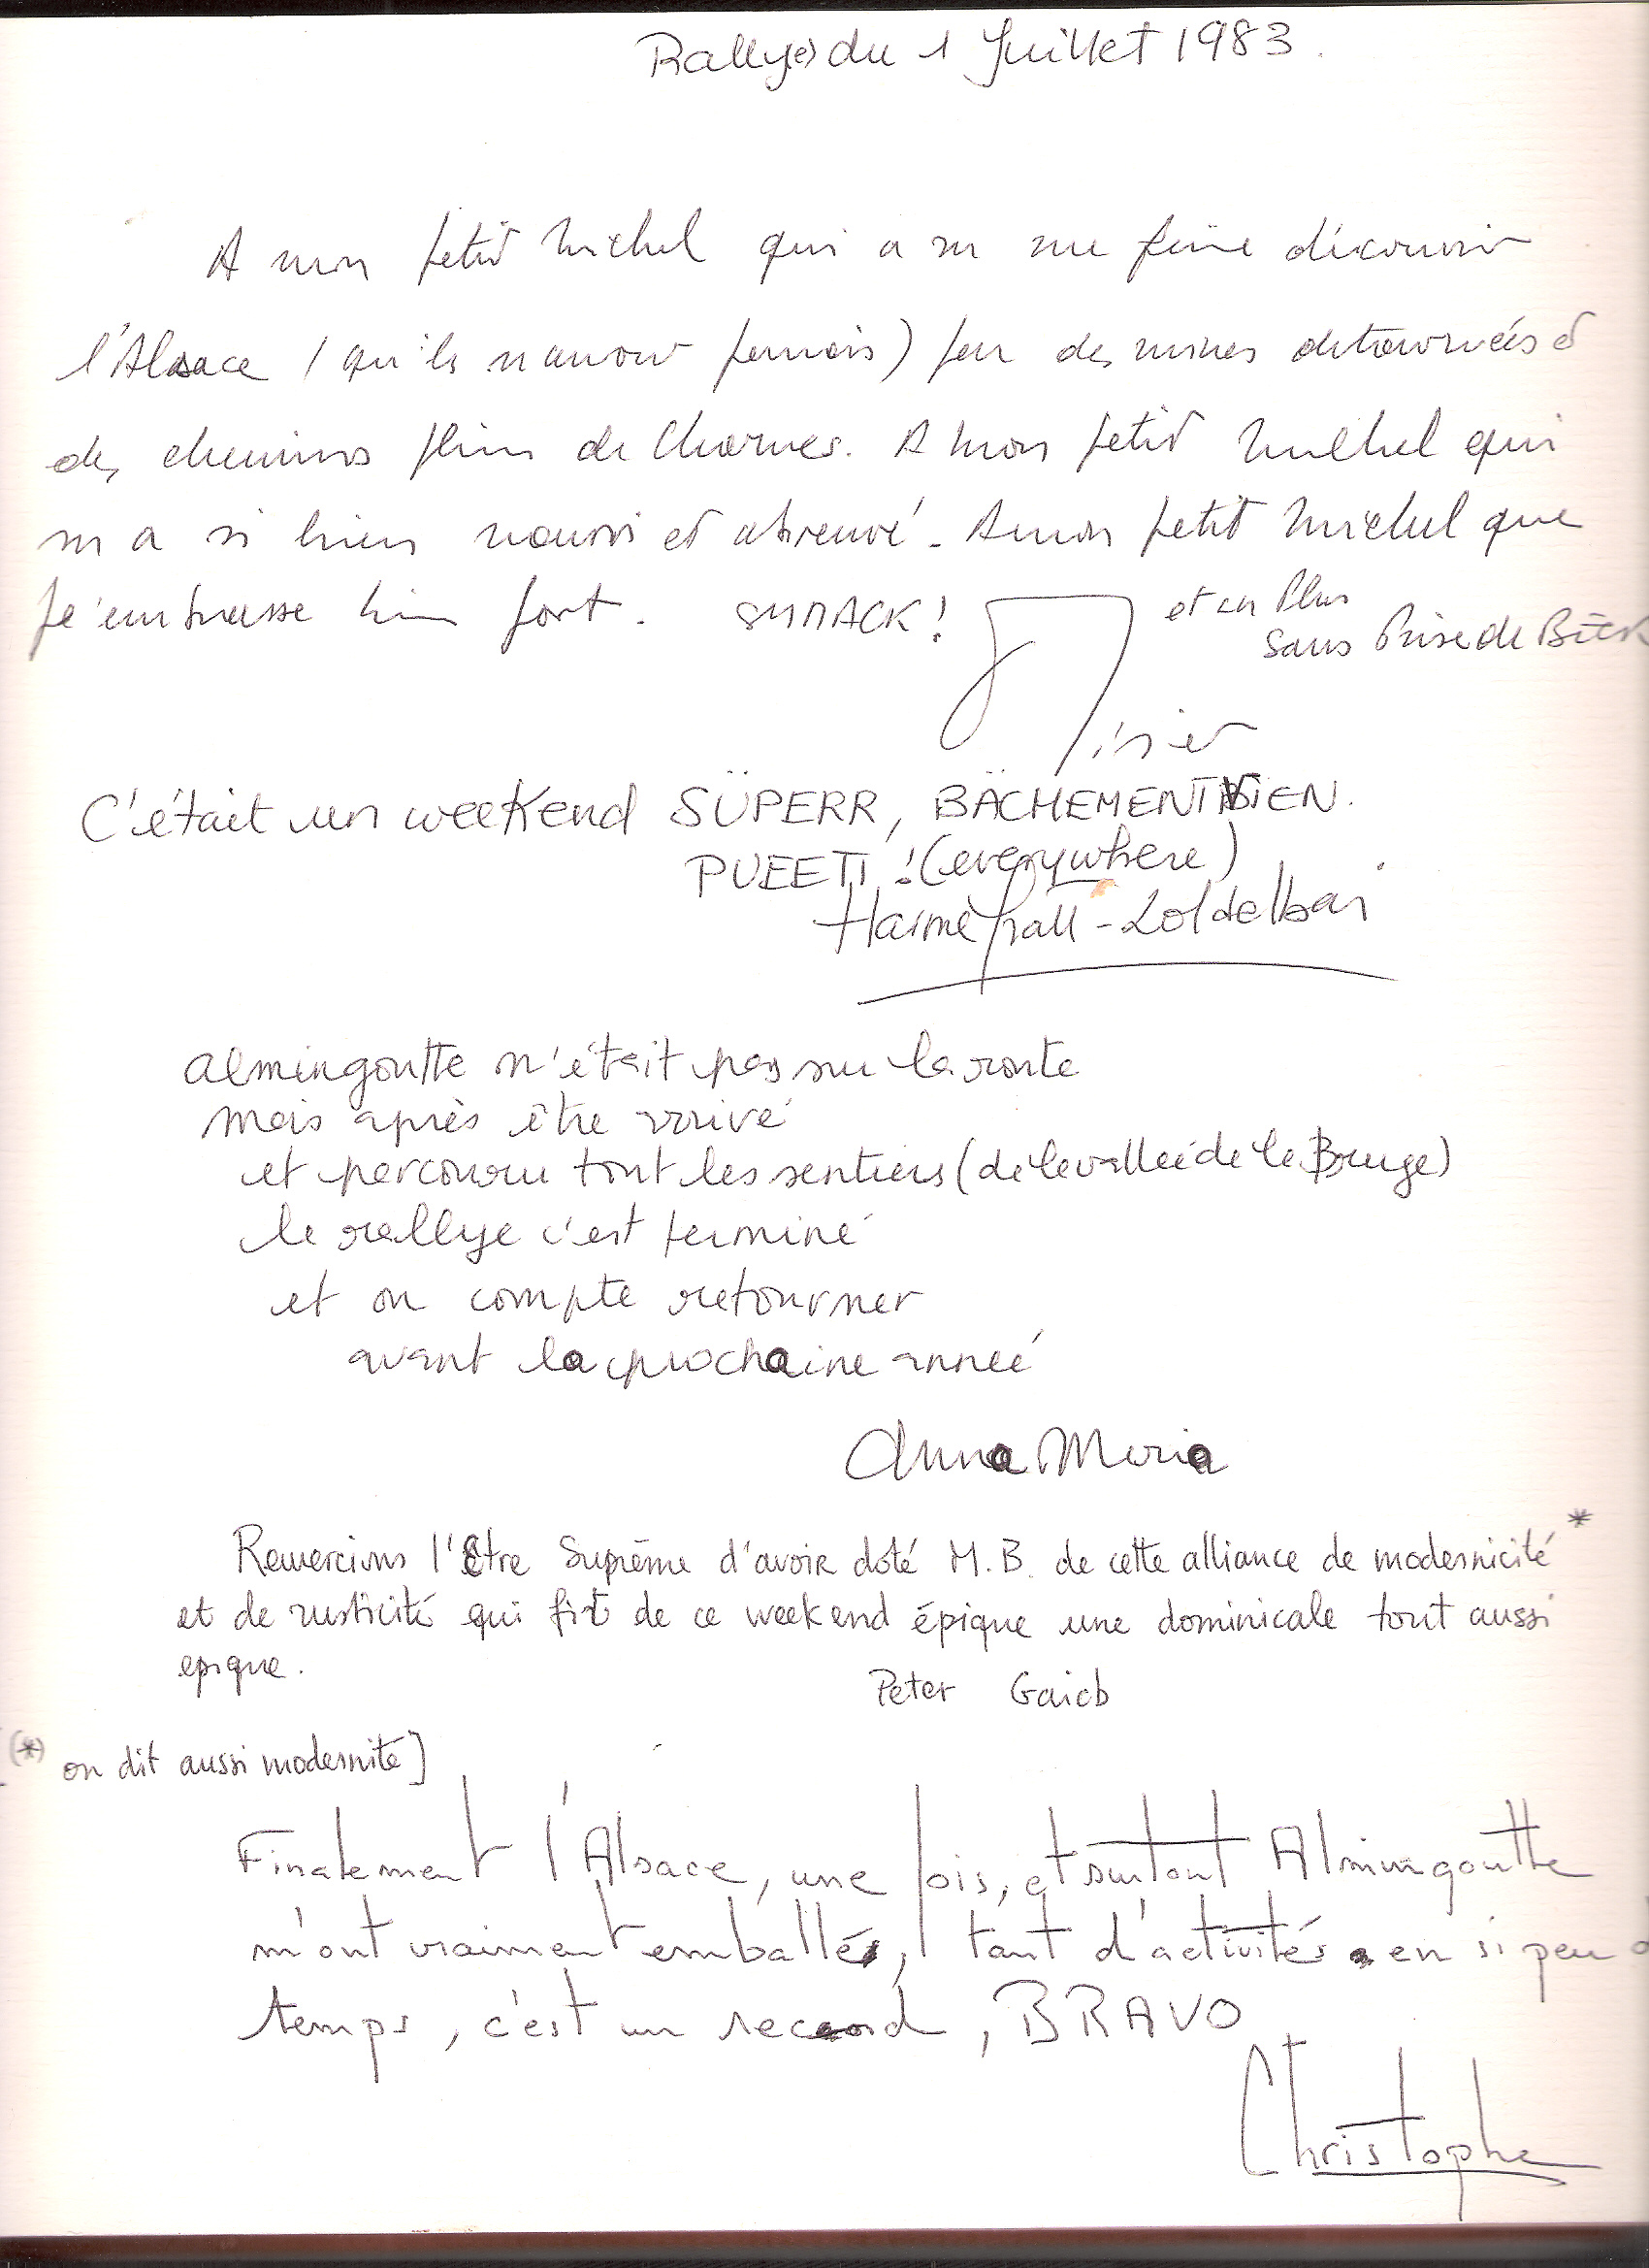 Rallye du 1 Juillet 1983.
A mon petit Michel qui a su me faire découvrir
l'Alsace (qu'ils n'auront jamais) par des ruses detournées et
des chemins plein de Charmes. A mon petit Michel qui
m'a si bien nourri et abreuvé. A mon petit Michel que
je embrasse bien fort. SMACK!
et en Plus
sans Prise de BECK
C'était un weekend SÜPERR, BÄCHEMENT BIEN.
PUEETT! (everywhere)
almingoutte n'était pas sur la route
mais après être arrivé
et parcouru tout les sentiers (de la valleé de la Bruge)
le rallye c'est terminé
et on compte retourner
avant la prochaine anneé
Anna Maria
Remercions l'Etre Suprême d'avoir doté M.B. de cette alliance de modernicité*
et de rusticité qui fit de ce weekend épique une dominicale tout aussi
epique.
Peter Gaicb
[(*) on dit aussi modernité]
Finalement l'Alsace, une fois, et surtout Almingoutte
m'ont vraiment emballé, tant d'activités en si peu d
temps, c'est un record, BRAVO
Christophe